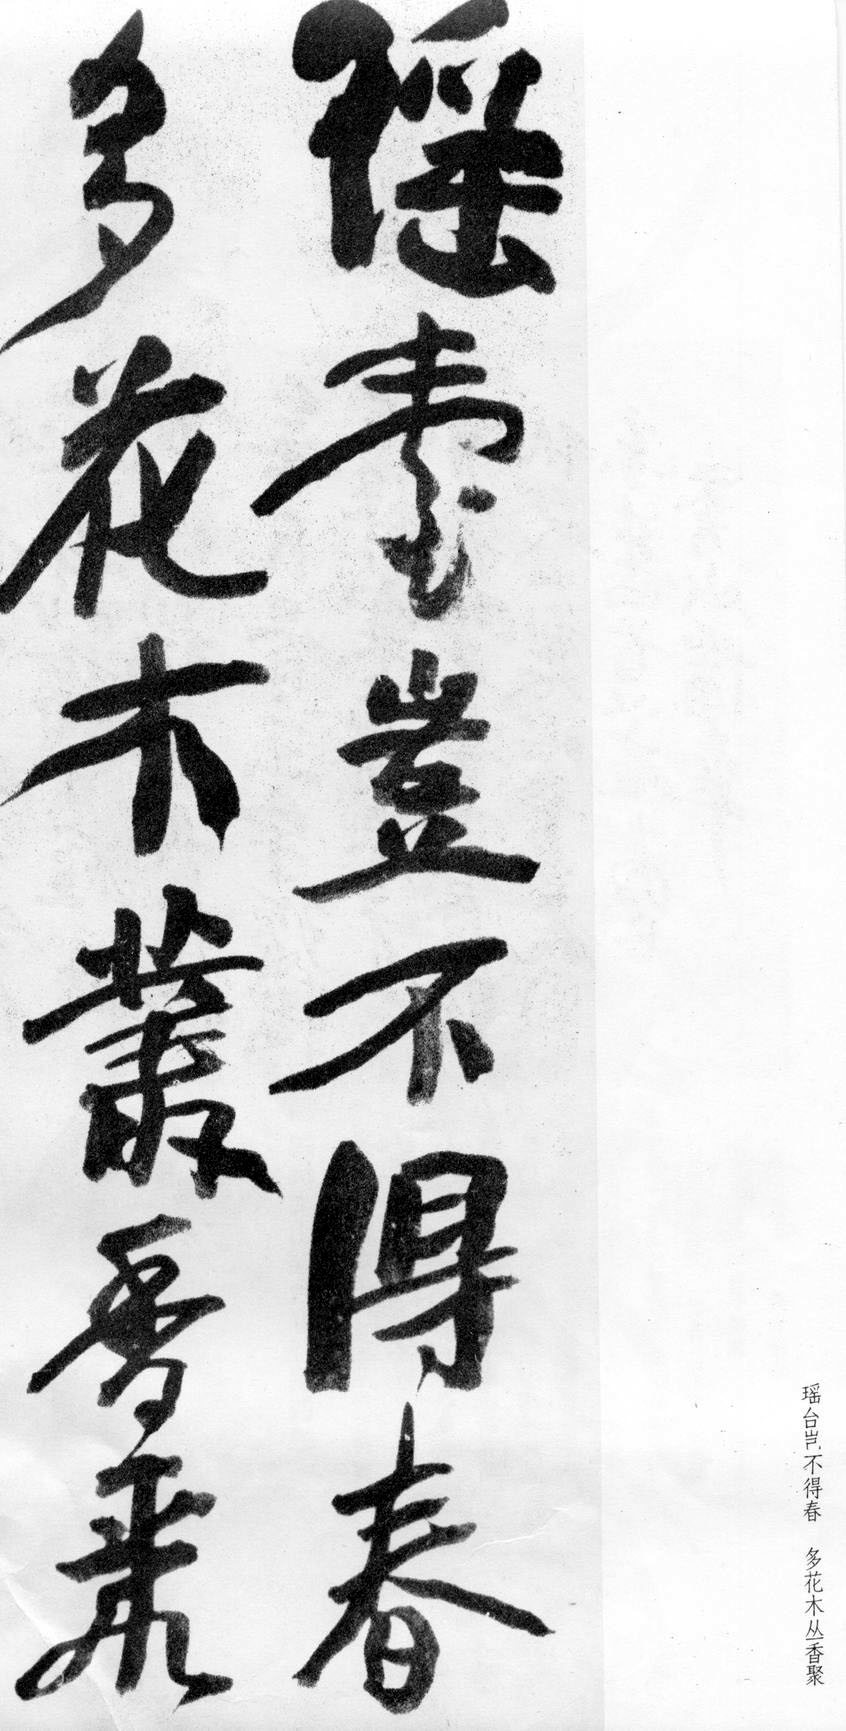 瑶臺豈不得春
多花木叢香聚
瑶台岂不得春　多花木丛香聚